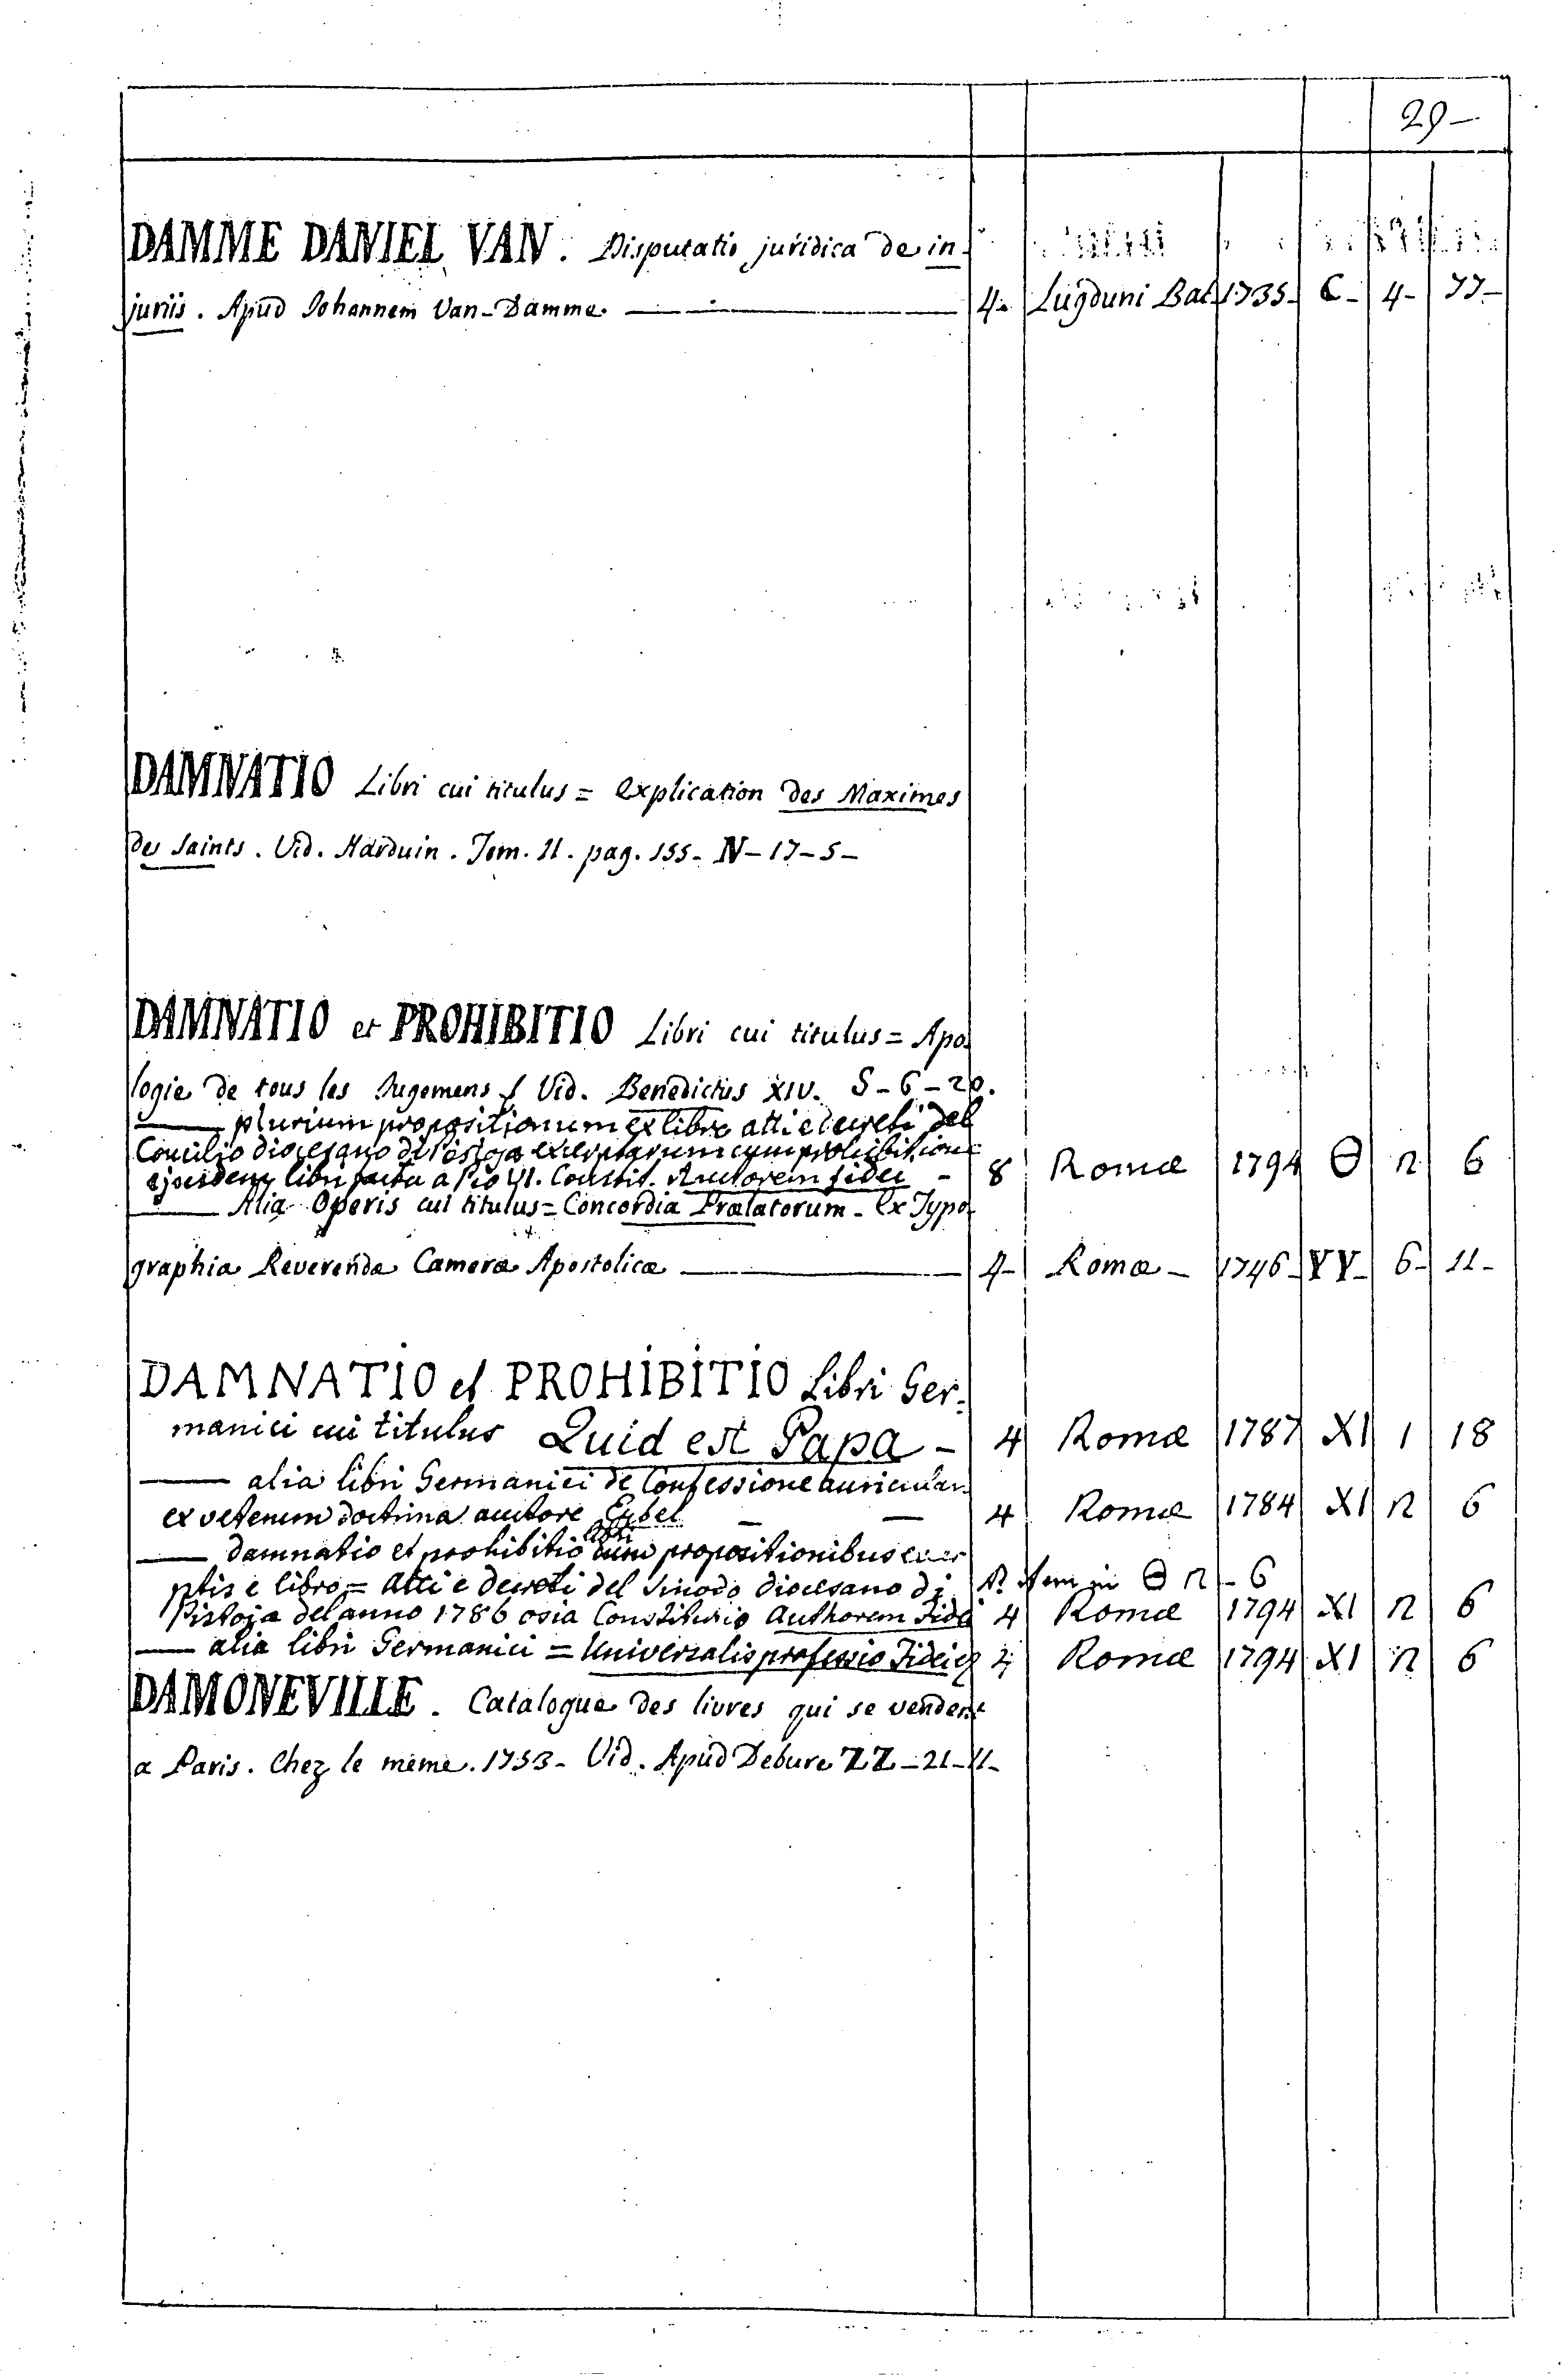 29-
DAMME DANIEL VAN. Disputatio juridica de in-
juriis. Apud Johannem Van-Damme. 4- Lugduni Bat 1735- C- 4- 77-
DAMNATIO Libri cui titulus = Explication des Maximes
des Saints. Vid. Harduin. Tom. 11. pag. 155- N-17-5-
DAMNATIO et PROHIBITIO Libri cui titulus = Apo
logie de tous les Jugemens / Vid. Benedictus XIV. S-6-20.
plurium propositionum ex libro atti e decreti del
Concilio diocesano di Pistoja excerptarum cum prohibitione
ejusdem libri facta a Pio VI. Constit. Auctorem fidei - 8 Romæ 1794 Θ n 6
Alia Operis cui titulus = Concordia Prælatorum. Ex Typo
graphia Reverendæ Cameræ Apostolicæ 4- Romæ- 1746- YY- 6- 11-
DAMNATIO et PROHIBITIO Libri Ger-
manici cui titulus Quid est Papa - 4 Romæ 1787 XI 1 18
alia libri Germanici de Confessione auricular
ex veterum doctrina auctore Eybel - - 4 Romæ 1784 XI n 6
libri
damnatio et prohibitio cum propositionibus excer
ptis e libro = Atti e decreti del Sinodo diocesano di item in Θ n - 6
Pistoja del anno 1786 osia Constitutio Authorem Fidei 4 Romæ 1794 XI n 6
alia libri Germanici = Universalis professio Fidei 4 Romæ 1794 XI n 6
DAMONEVILLE. Catalogue des livres qui se vendent
a Paris. Chez le meme. 1753- Vid. Apud Debure ZZ-21-11-